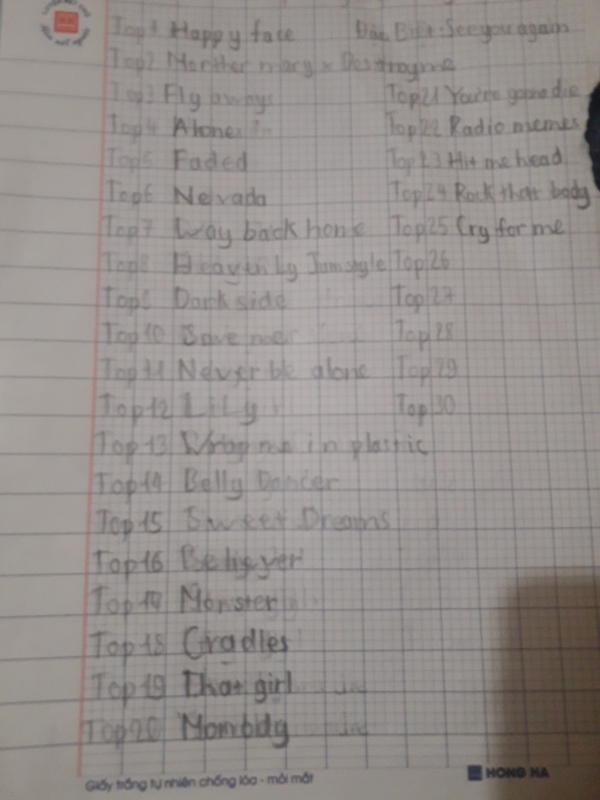 Top1 Happy face Đặc Biệt: See you again
Top2 Monther mary x Destroyme
Top3 Fly aways Top21 You're gonna die
Top4 Alone Top22 Radio memes
Top5 Faded Top23 Hit me head
Top6 Nevada Top24 Rock that body
Top7 Way back home Top25 Cry for me
Top8 Jumstyle Top26
Top9 Dark side Top27
Top10 Save me Top28
Top11 Never be alone Top29
Top12 Lily Top30
Top13 Wrap me in plastic
Top14 Belly Dancer
Top15 Sweet Dreams
Top16 Beligyer
Top17 Monster
Top18 Cradles
Top19 That girl
Top20 Mombdy
Giấy trắng tự nhiên chống lóa - mỏi mắt HONG HA